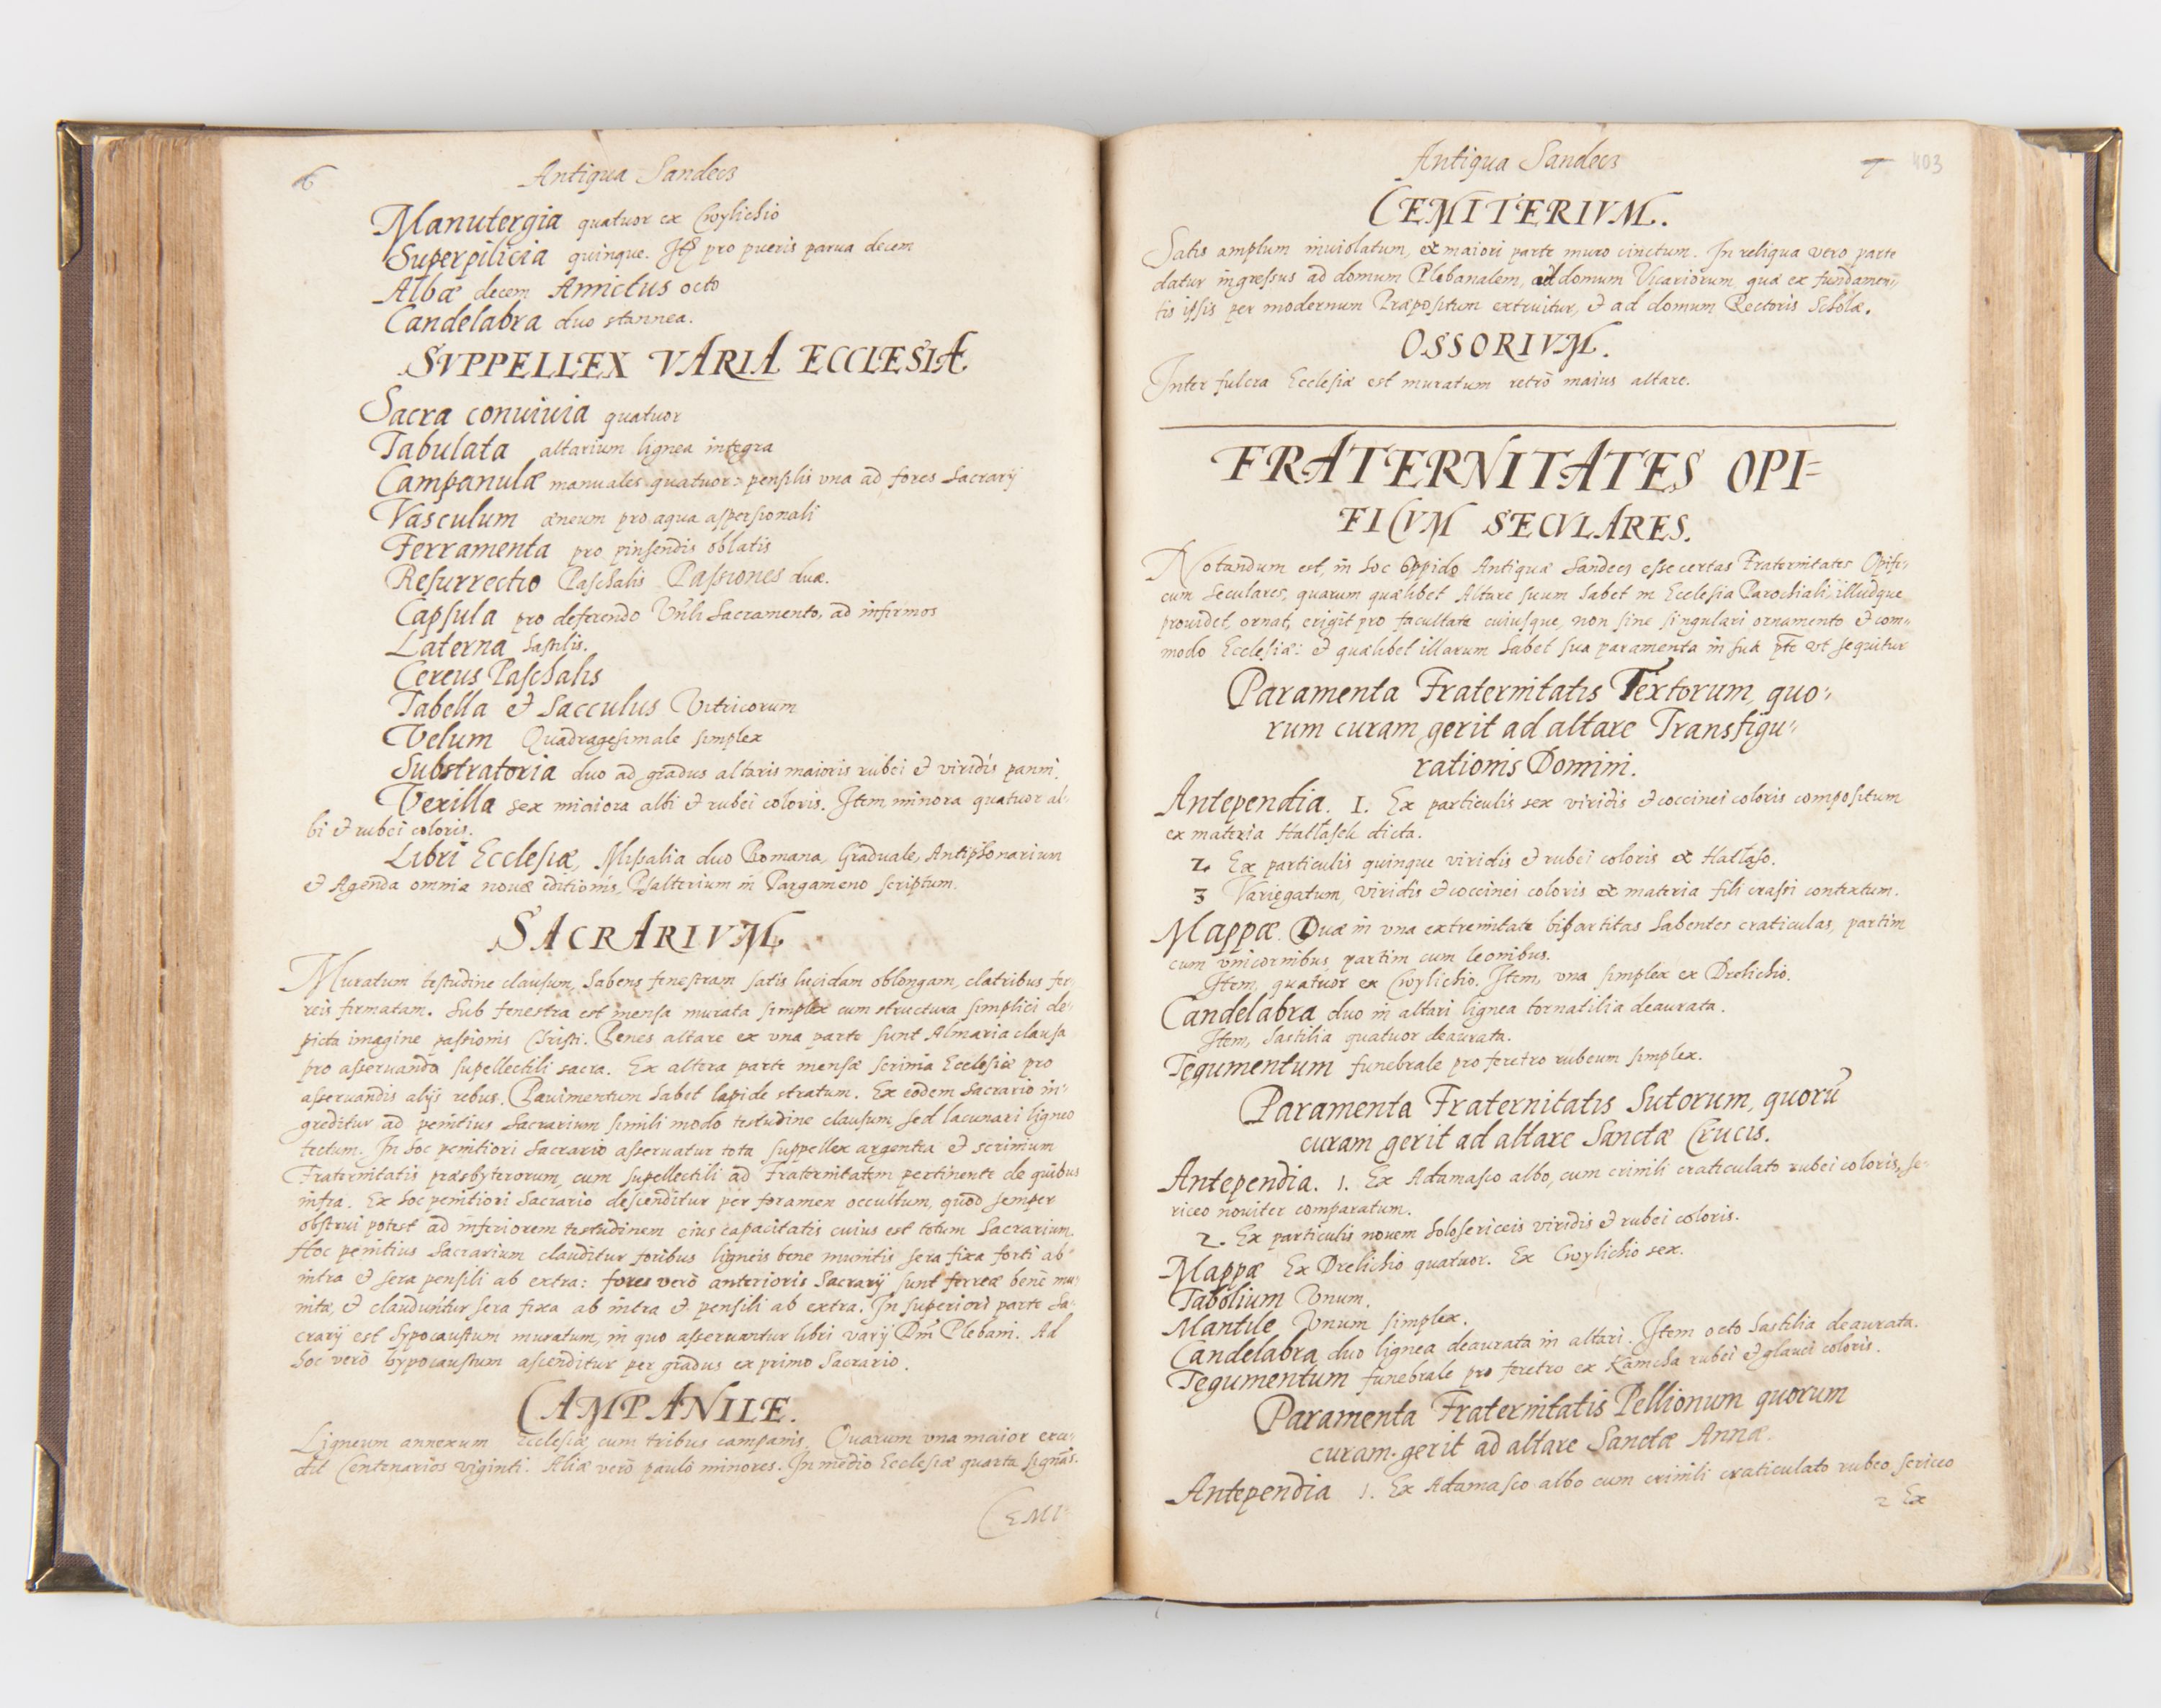 6
Antiqua Sandecz
Manutergia quatuor ex Cwylichio
Superpilicia quinque. Itē pro pueris parua decem
Albæ decem Amictus octo
Candelabra duo stannea.
SVPPELLEX VARIA ECCLESIÆ
Sacra conuiuia quatuor
Tabulata altarium lignea integra
Campanulæ manuales quatuor: pensilis vna ad fores Sacrarij
Vasculum æneum pro aqua aspersionali
Ferramenta pro pinsendis oblatis
Resurrectio Paschalis Passiones duæ.
Capsula pro deferendo Vn̄li Sacramento, ad infirmos
Laterna hastilis.
Cereus Paschalis
Tabella & Sacculus Vitricorum
Velum Quadragesimale simplex
Substratoria duo ad gradus altaris maioris rubei & viridis panni.
Vexilla sex maiora albi & rubei coloris. Item minora quatuor al-
bi & rubei coloris.
Libri Ecclesiæ, Missalia duo Romana, Graduale, Antiphonarium
& Agenda omnia nouæ editionis, Psalterium in Pargameno scriptum.
SACRARIVM,
Muratum testudine clausum, habens fenestram satis lucidam oblongam, clatribus fer-
reis firmatam. Sub fenestra est mensa murata simplex cum structura simplici de-
picta imagine passionis Christi. Penes altare ex vna parte sunt Almaria clausa
pro asseruanda supellectili sacra. Ex altera parte mensæ scrinia Ecclesiæ pro
asseruandis alijs rebus. Pauimentum habet lapide stratum. Ex eodem Sacrario in-
greditur ad penitius Sacrarium simili modo testudine clausum, sed lacunari ligneo
tectum. In hoc penitiori Sacrario asseruatur tota suppellex argentea & scrinium
Fraternitatis præsbyterorum, cum supellectili ad Fraternitatem pertinente de quibus
infra. Ex hoc penitiori Sacrario descenditur per foramen occultum, quod semper
obstrui potest ad inferiorem testudinem eius capacitatis cuius est totum Sacrarium.
Hoc penitius Sacrarium clauditur foribus ligneis bene munitis sera fixa forti ab-
intra & sera pensili ab extra: fores verò anterioris Sacrarij sunt ferreæ benè mu-
nitæ, & clauduntur sera fixa ab intra & pensili ab extra. In superiori parte Sa-
crarij est hypocaustum muratum, in quo asseruantur libri varij Dn̄i Plebani. Ad
hoc verò hypocaustum ascenditur per gradus ex primo Sacrario.
CAMPANILE.
Ligneum annexum Ecclesiæ cum tribus campanis. Quarum vna maior exce-
dit Centenarios viginti. Aliæ verò paulò minores. In medio Ecclesiæ quarta signās.
CEMI-
Antiqua Sandecz
7 403
CEMITERIVM.
Satis amplum inuiolatum, ex maiori parte muro cinctum. In reliqua vero parte
datur ingressus ad domum Plebanalem, ad domum Vicariorum, quæ ex fundamen-
tis ipsis per modernum Præpositum extruitur, & ad domum Rectoris Scholæ.
OSSORIVM.
Inter fulcra Ecclesiæ est muratum retrò maius altare.
FRATERNITATES OPI=
FICVM SECVLARES.
Notandum est, in hoc Oppido Antiquæ Sandecz esse certas Fraternitates Opifi-
cum Seculares, quarum quælibet Altare suum habet in Ecclesia Parochiali, illudque
prouidet, ornat, erigit pro facultate cuiusque, non sine singulari ornamento & com-
modo Ecclesiæ: & quælibet illarum habet sua paramenta in sua pte vt sequitur
Paramenta Fraternitatis Textorum, quo-
rum curam gerit ad altare Transfigu-
rationis Domini.
Antependia. 1. Ex particulis sex viridis & coccinei coloris compositum
ex materia Hatłasek dicta.
2. Ex particulis quinque viridis & rubei coloris ex Hatłaso.
3 Variegatum, viridis & coccinei coloris ex materia fili crassi contextum.
Mappæ. Duæ in vna extremitate bipartitas habentes craticulas, partim
cum vnicornibus partim cum leonibus.
Item, quatuor ex Cwylichio. Item, vna simplex ex Drelichio.
Candelabra duo in altari lignea tornatilia deaurata.
Item, hastilia quatuor deaurata.
Tegumentum funebrale pro feretro rubeum simplex.
Paramenta Fraternitatis Sutorum, quorū
curam gerit ad altare Sanctæ Crucis.
Antependia. 1. Ex Adamasco albo, cum crinili craticulato rubei coloris, se-
riceo nouiter comparatum.
2. Ex particulis nouem holosericeis viridis & rubei coloris.
Mappæ Ex Drelichio quatuor. Ex Cwylichio sex.
Tabolium Vnum.
Mantile Vnum simplex.
Candelabra duo lignea deaurata in altari. Item octo hastilia deaurata.
Tegumentum funebrale pro feretro ex Kamcha rubei & glauci coloris.
Paramenta Fraternitatis Pellionum quorum
curam gerit ad altare Sanctæ Annæ.
Antependia 1. Ex Adamasco albo cum crinili craticulato rubeo sericeo
2 Ex